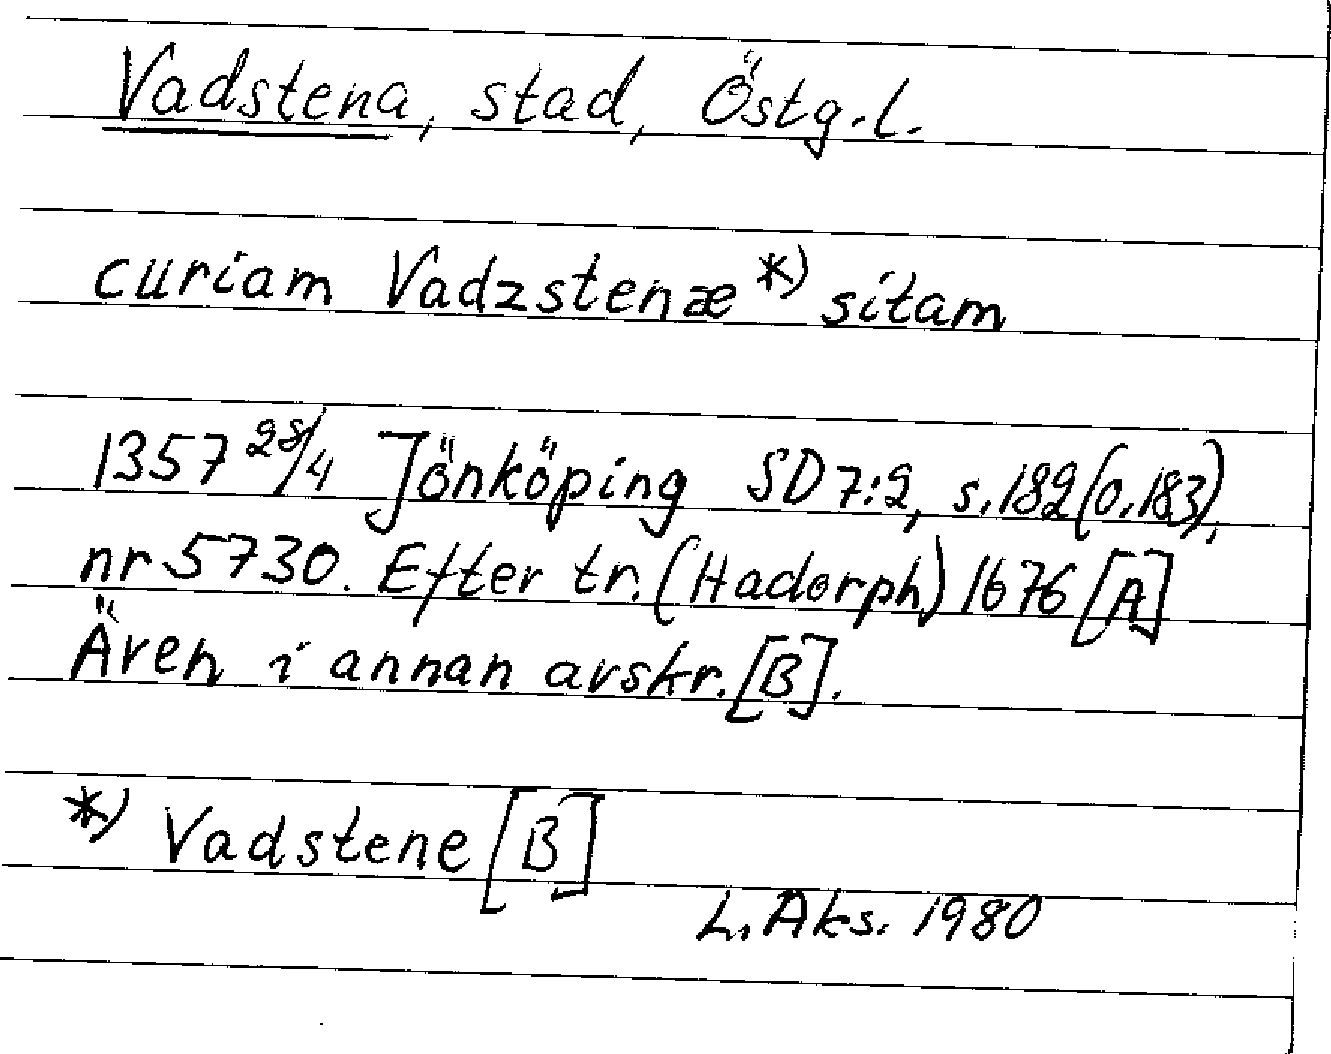 Vadstena, stad, Östg.l.
curiam Vadzstenæ *) sitam
1357 28/4 Jönköping SD 7:2, s.182 (o.183),
nr 5730. Efter tr. (Hadorph) 1676 [A]
Även i annan avskr. [B].
*) Vadstene [B]
L. Aks. 1980